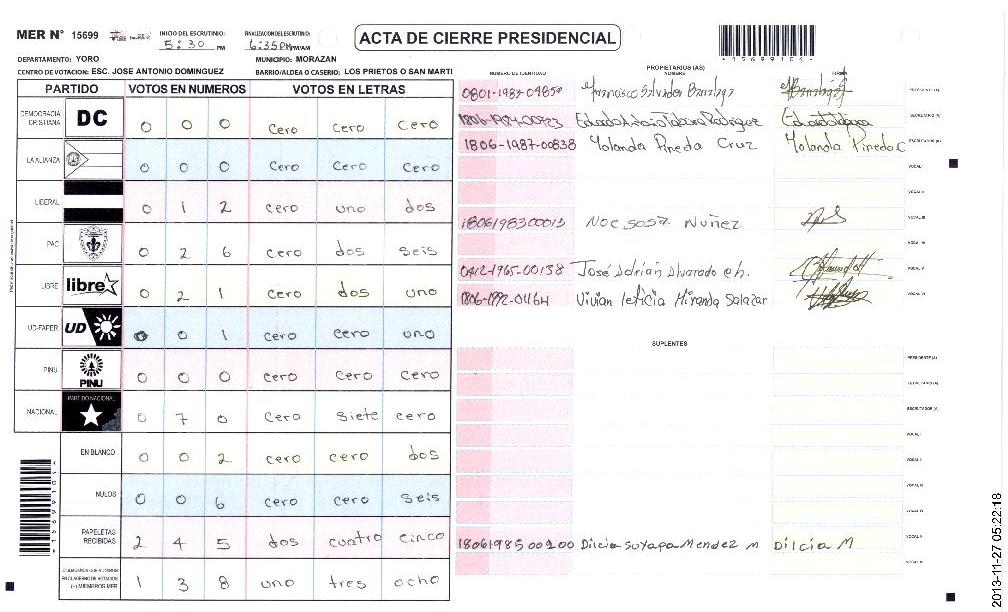 MER N° 15699
INICIO DEL ESCRUTINIO: 5:30 PM
FINALIZACION DEL ESCRUTINIO: 6:35PM PM/AM
ACTA DE CIERRE PRESIDENCIAL
*15699104*
DEPARTAMENTO: YORO
MUNICIPIO: MORAZAN
CENTRO DE VOTACION: ESC. JOSE ANTONIO DOMINGUEZ
BARRIO/ALDEA O CASERIO: LOS PRIETOS O SAN MARTI
PARTIDO VOTOS EN NUMEROS VOTOS EN LETRAS
DEMOCRACIA CRISTIANA DC 0 0 0 cero cero cero
LA ALIANZA 0 0 0 cero cero cero
LIBERAL 0 1 2 cero uno dos
PAC 0 2 6 cero dos seis
LIBRE libre 0 2 1 cero dos uno
UD-FAPER UD 0 0 1 cero cero uno
PINU PINU 0 0 0 cero cero cero
NACIONAL PARTIDO NACIONAL 0 7 0 cero siete cero
EN BLANCO 0 0 2 cero cero dos
NULOS 0 0 6 cero cero seis
PAPELETAS RECIBIDAS 2 4 5 dos cuatro cinco
CIUDADANOS QUE VOTARON EN CUADERNO DE VOTACION (+) MIEMBROS MER 1 3 8 uno tres ocho
PROPIETARIOS (AS)
NUMERO DE IDENTIDAD NOMBRE FIRMA
0801-1987-04850 Francisco Salvador PRESIDENTE (A)
SECRETARIO (A)
1806-1987-00838 Yolanda Pineda Cruz Yolanda Pineda C ESCRUTADOR (A)
VOCAL I
VOCAL II
1806198300013 Noe sosa Nuñez VOCAL III
VOCAL IV
0412-1965-00138 José Adrián Alvarado eh. VOCAL V
1806-1992-01164 Vivian leticia Miranda Salazar VOCAL VI
SUPLENTES
PRESIDENTE (A)
SECRETARIO (A)
ESCRUTADOR (A)
VOCAL I
VOCAL II
VOCAL III
VOCAL IV
1806198500200 Dilcia Suyapa Mendez M Dilcia M VOCAL V
VOCAL VI
2013-11-27 05:22:18